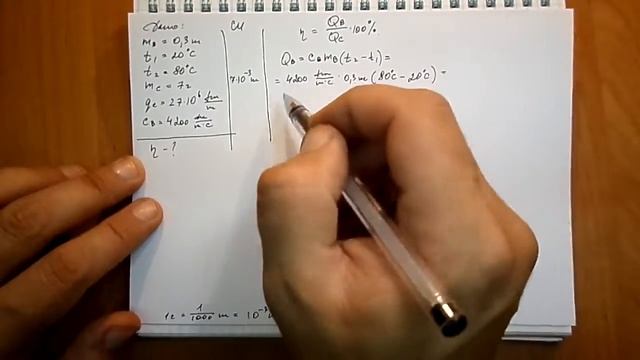 Дано:
m_в = 0,3 кг
t₁ = 20°C
t₂ = 80°C
m_c = 7г
q_c = 27·10⁶ Дж/кг
c_в = 4200 Дж/кг·°C
η - ?
СИ
7·10⁻³ кг
η = Q_в/Q_c · 100%.
Q_в = c_в m_в (t₂ - t₁) =
= 4200 Дж/кг·°C · 0,3 кг (80°C - 20°C) =
1г = 1/1000 кг = 10⁻³